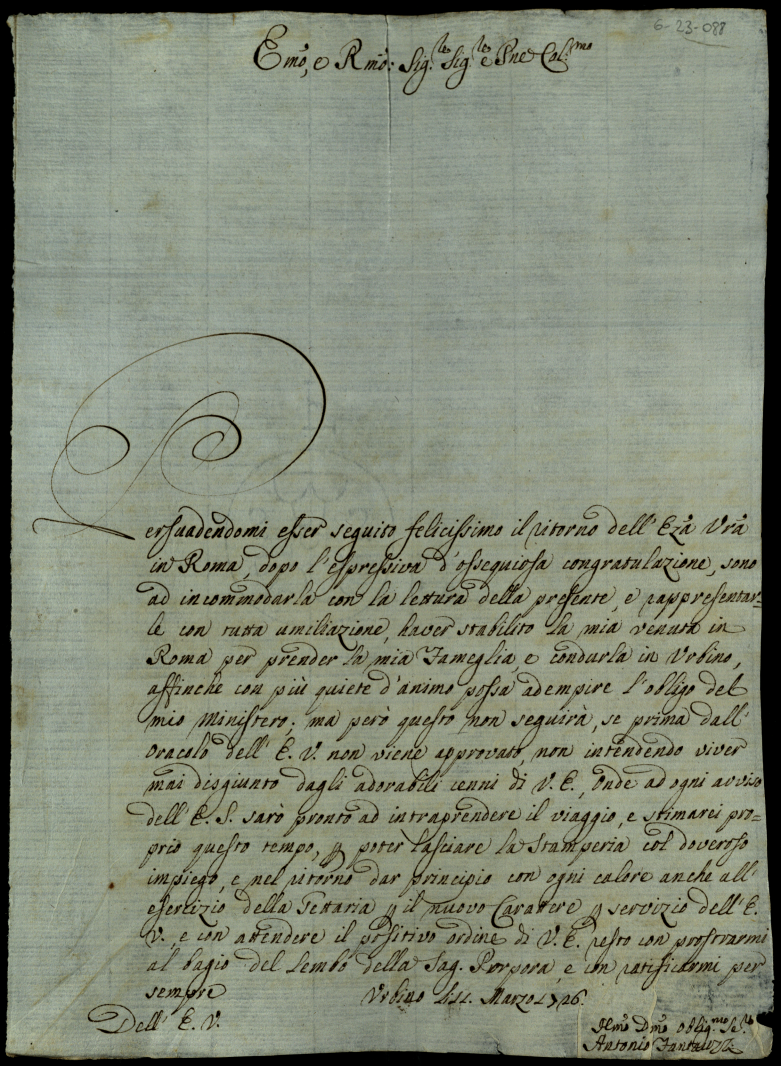 6-23-088
Emo, e Rmo: Sig.re Sig.re e Pne Col.mo
Persuadendomi esser seguito felicissimo il ritorno dell' Eza Vra
in Roma, dopo l'espressiva d'ossequiosa congratulazione, sono
ad incommodarla con la lettura della presente, e rappresentar-
le con tutta umiliazione, haver stabilito la mia venuta in
Roma per prender la mia Fameglia, e condurla in Urbino,
affinche con più quiete d'animo possa adempire l'obligo del
mio ministero; ma però questo non seguirà, se prima dall'
oracolo dell' E. V. non viene approvato, non intendendo viver
mai disgiunto dagli adorabili cenni di V. E., onde ad ogni avviso
dell' E. S. sarò pronto ad intraprendere il viaggio, e stimarei pro=
prio questo tempo, p poter lasciare la Stamperia col doveroso
impiego, e nel ritorno dar principio con ogni calore anche all'
esercizio della Gettaria p il nuovo Carattere p servizio dell' E.
V., e con attendere il positivo ordine di V. E. resto con prostrarmi
al bagio del lembo della Sag. Porpora, e con ratificarmi per
sempre Urbino li Marzo 1726.
Dell' E. V.
Dmo oblig.mo Se.re
Antonio